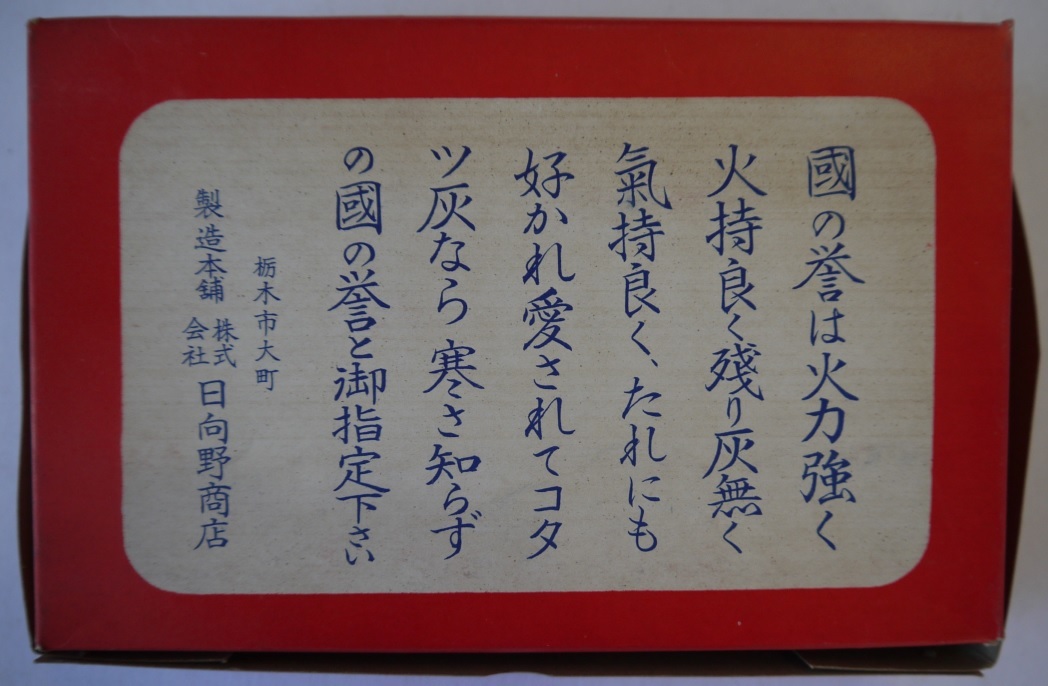 國の誉は火力強く
火持良く殘り灰無く
氣持良く、たれにも
好かれ愛されてコタ
ツ灰なら寒さ知らず
の國の誉と御指定下さい
栃木市大町
製造本舗 株式会社 日向野商店